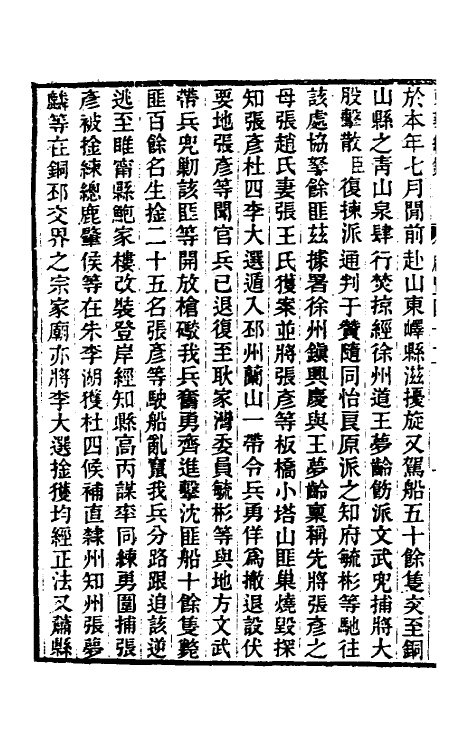 於本年七月間前赴山東嶧縣滋擾旋又駕船五十餘隻突至銅
山縣之靑山泉肆行焚掠經徐州道王夢齡飭派文武兜捕將大
股擊散臣復揀派通判于贊隨同怡良原派之知府毓彬等馳往
該處協拏餘匪茲據署徐州鎭興慶與王夢齡稟稱先將張彥之
母張趙氏妻張王氏獲案並將張彥等板橋小塔山匪巢燒毀探
知張彥杜四李大選遁入邳州蘭山一帶令兵勇佯爲撤退設伏
要地張彥等聞官兵已退復至耿家灣委員毓彬等與地方文武
帶兵兜勦該匪等開放槍礮我兵奮勇齊進擊沈匪船十餘隻斃
匪百餘名生捦二十五名張彥等駛船亂竄我兵分路跟追該逆
逃至睢甯縣鮑家樓改裝登岸經知縣高丙謀率同練勇圍捕張
彥被捦練總鹿肇侯等在朱李湖獲杜四候補直隸州知州張夢
麟等在銅邳交界之宗家廟亦將李大選捦獲均經正法又蕭縣